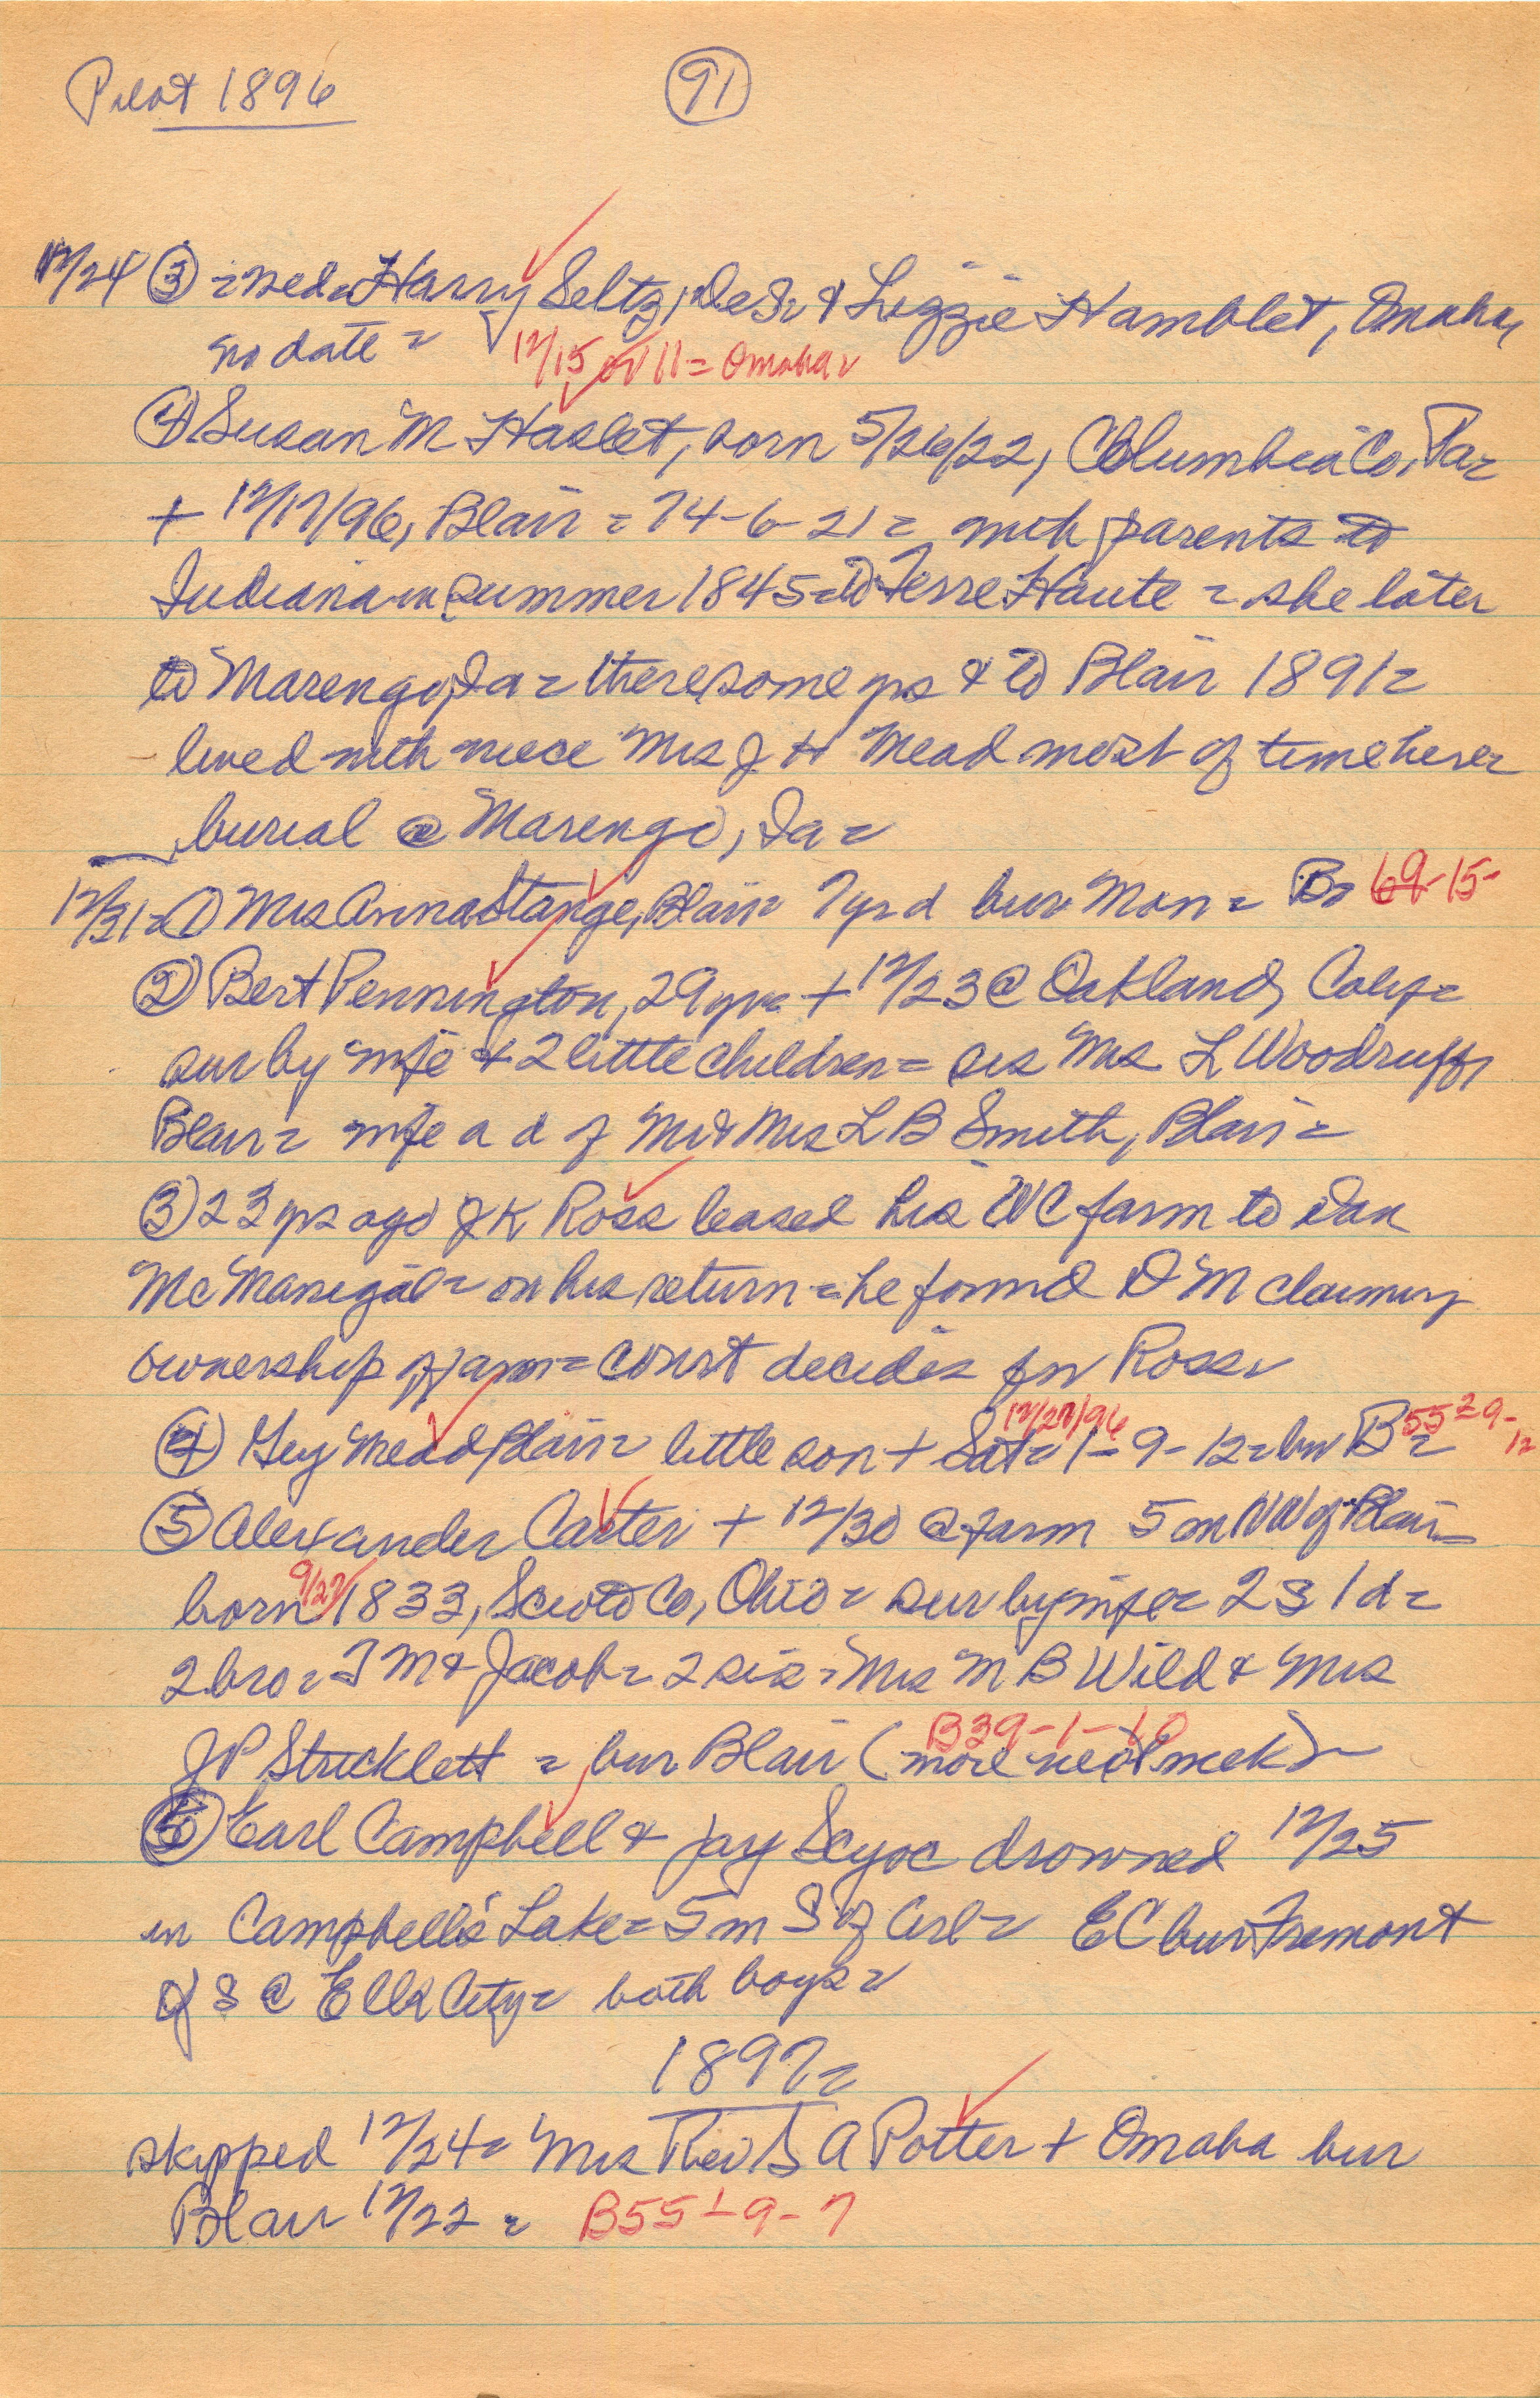 Pilot 1896 (91)
12/24 (3) = Wed = Harry Seltz, DeSo & Lizzie Hamblet, Omaha,
no date = 12/15 or 11 = Omaha =
(4) Susan M Haslet, born 5/26/22, Columbia Co, Pa =
+ 12/17/96, Blair = 74-6-21 = with parents to
Indiana in summer 1845 = to Terre Haute = she later
to Marengo, Ia = there some yrs & to Blair 1891 =
lived with niece Mrs J H Mead most of time here =
burial @ Marengo, Ia =
12/31 = (1) Mrs Anna Stange, Blair = 7 yr d bur Mon = B = 69-15-
(2) Bert Pennington, 29 yrs = + 12/23 @ Oakland, Calif =
sur by wife & 2 little children = sis Mrs L Woodruff,
Blair = wife a d of Mr & Mrs L B Smith, Blair =
(3) 23 yrs ago J K Ross leased his WC farm to Dan
McManigal = on his return = he found D M claiming
ownership of farm = court decides for Ross =
(4) Guy Mead, Blair = little son + Sat = 12/27/96 1-9-12 = bur B = 55 2-9-12
(5) Alexander Carter + 12/30 @ farm 5 m NW of Blair =
born 9/27 1833, Scioto Co, Ohio = sur by wife = 2 s 1 d =
2 bro = T M & Jacob = 2 sis = Mrs M B Wild & Mrs
J P Stricklett = bur Blair (more next week) B39-1-10
(6) Earl Campbell & Jay Scyoc drowned 12/25
in Campbell's Lake = 5 m S of Arl = EC bur Fremont
J S @ Elk City = both boys =
1897 =
skipped 12/24 = Mrs Rev S A Potter + Omaha bur
Blair 12/22 = B55 1-9-7